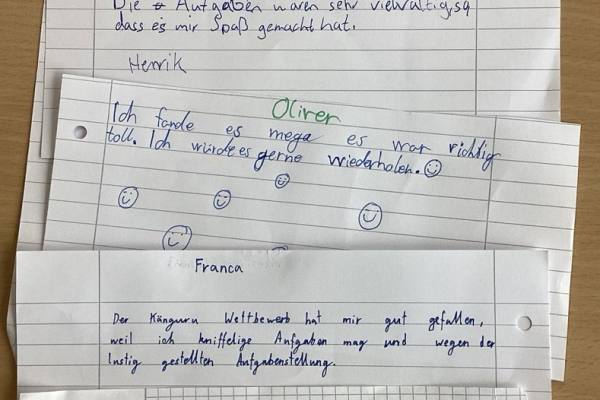 Die Aufgaben waren sehr vielwältig, sq
dass es mir Spaß gemacht hat.
Henrik
Oliver
Ich fande es mega es war richtig
toll. Ich würde es gerne wiederholen.
Franca
Der Känguru Wettbewerb hat mir gut gefallen,
weil ich kniffelige Aufgaben mag und wegen der
lustig gestellten Aufgabenstellung.